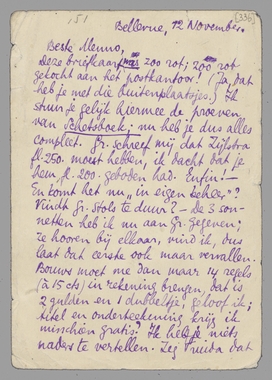 151
[336]
Bellevue, 12 November.
Beste Menno,
Deze briefkaart was zoo rot; zoo rot
gelocht aan het postkantoor! (Ja dat
heb je met die buitenplaatsjes.) Ik
stuur je gelijk hiermee de proeven
van Schetsboek; nu heb je dus alles
compleet. Gr. schreef mij dat Zijlstra
fl. 250. moest hebben, ik dacht dat je
hem fl. 200. geboden had. Enfin! —
En komt het nu "in eigen beheer"?
Vindt Gr. Stols te duur? — De 3 son-
netten heb ik nu aan Gr. gegeven;
ze hooren bij elkaar, vind ik, dus
laat dat eerste ook maar vervallen.
Bouws moet me dan maar 14 regels
(à 15 cts) in rekening brengen, dat is
2 gulden en 1 dubbeltje, geloof ik;
titel en onderteekening krijg ik
misschien gratis? Ik heb je niets
naders te vertellen. Zeg Truida dat